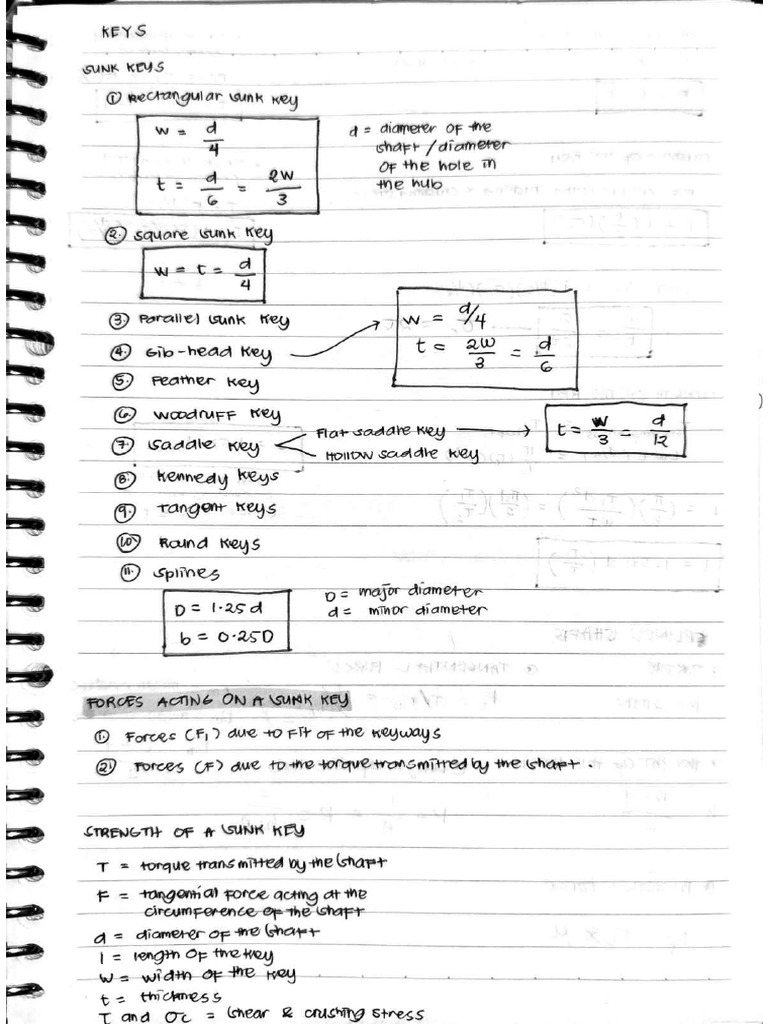 KEYS
SUNK KEYS
① Rectangular sunk key
w = d/4
t = d/6 = 2w/3
d = diameter of the
shaft / diameter
of the hole in
the hub
② Square sunk key
w = t = d/4
③ Parallel sunk key
④ Gib-head key
w = d/4
t = 2w/3 = d/6
⑤ Feather key
⑥ Woodruff key
⑦ Saddle key
Flat saddle key
Hollow saddle key
t = w/3 = d/12
⑧ Kennedy keys
⑨ Tangent keys
⑩ Round keys
⑪ Splines
D = 1.25d
b = 0.25D
D = major diameter
d = minor diameter
FORCES ACTING ON A SUNK KEY
① Forces (F₁) due to fit of the keyways
② Forces (F) due to the torque transmitted by the shaft.
STRENGTH OF A SUNK KEY
T = torque transmitted by the shaft
F = tangential force acting at the
circumference of the shaft
d = diameter of the shaft
l = length of the key
w = width of the key
t = thickness
τ and σc = shear & crushing stress